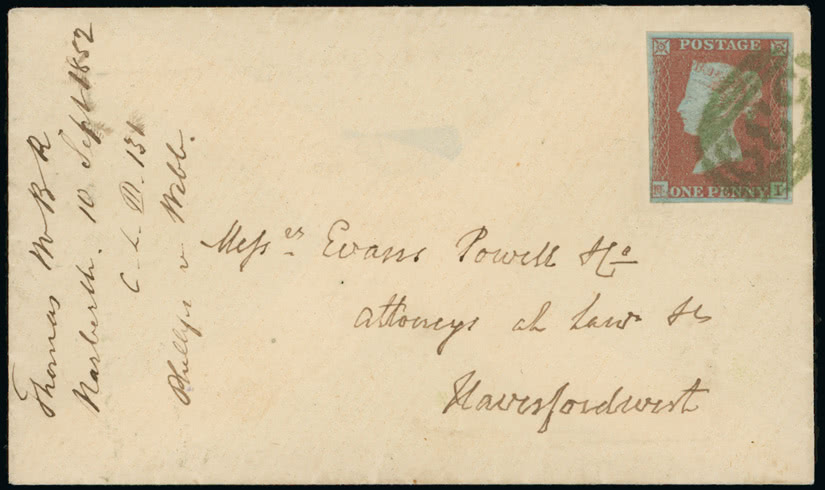 Thomas Mr B R
Narberth. 10 Sept 1852
C. L. D. 131
Phillips v Webb.
POSTAGE
ONE PENNY
Messrs Evans Powell & Co
Attorneys at Law &c
Haverfordwest